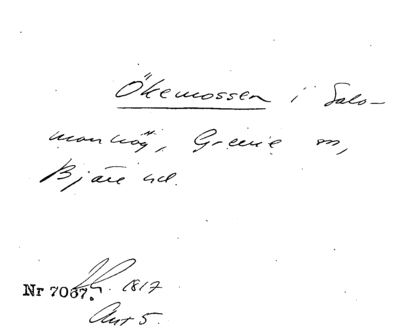 Ökemossen i Salo-
monhög, Grevie sn,
Bjäre hd.
Nr 7067. LG. 1817
Akt 5.